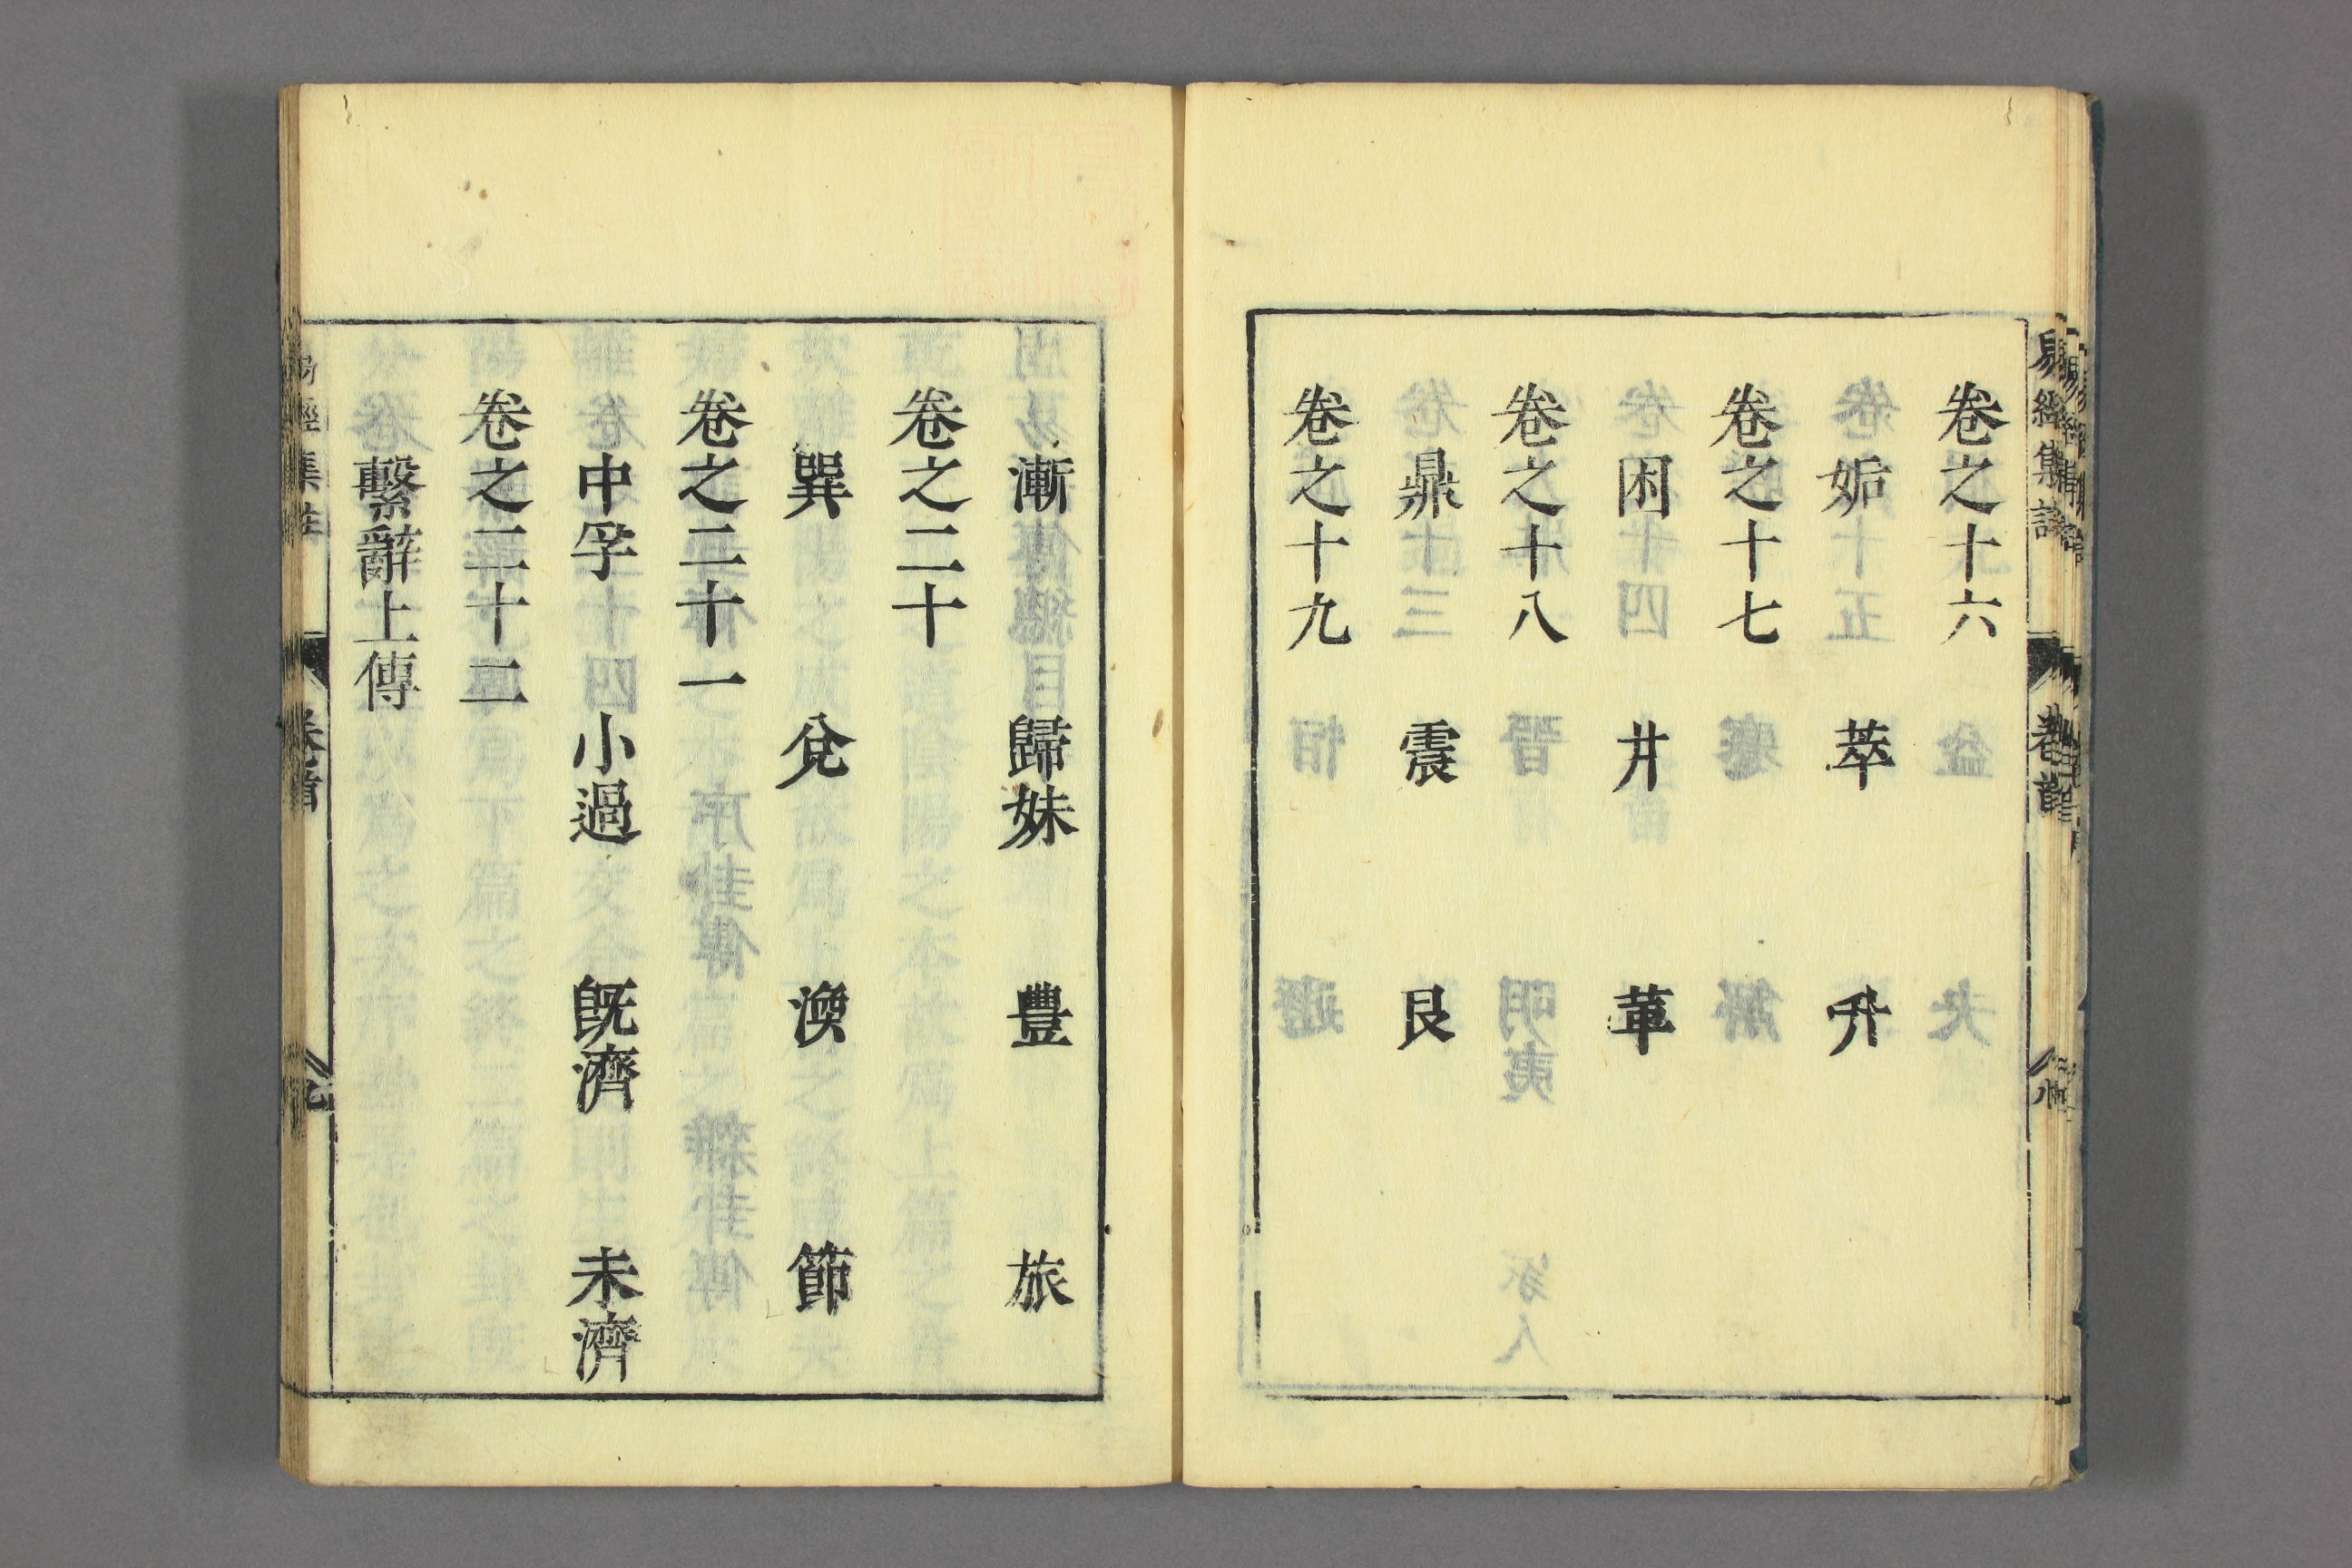 卷之十六
姤 萃 升
卷之十七
困 井 革
卷之十八
鼎 震 艮
卷之十九
漸 歸妹 豐 旅
卷之二十
巽 兌 渙 節
卷之二十一
中孚 小過 旣濟 未濟
卷之二十二
繫辭上傳